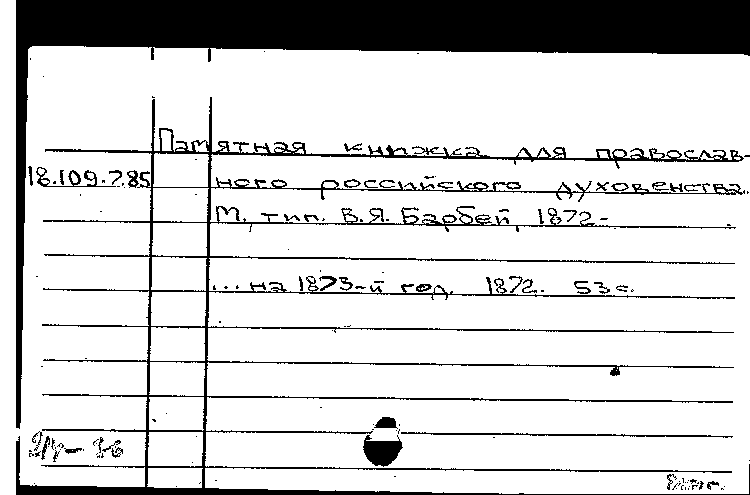 Памятная книжка для православ-
18.109.7.85 ного российского духовенства.
М., тип. В.Я. Барбей, 1872-
... на 1873-й год. 1872. 53 с.